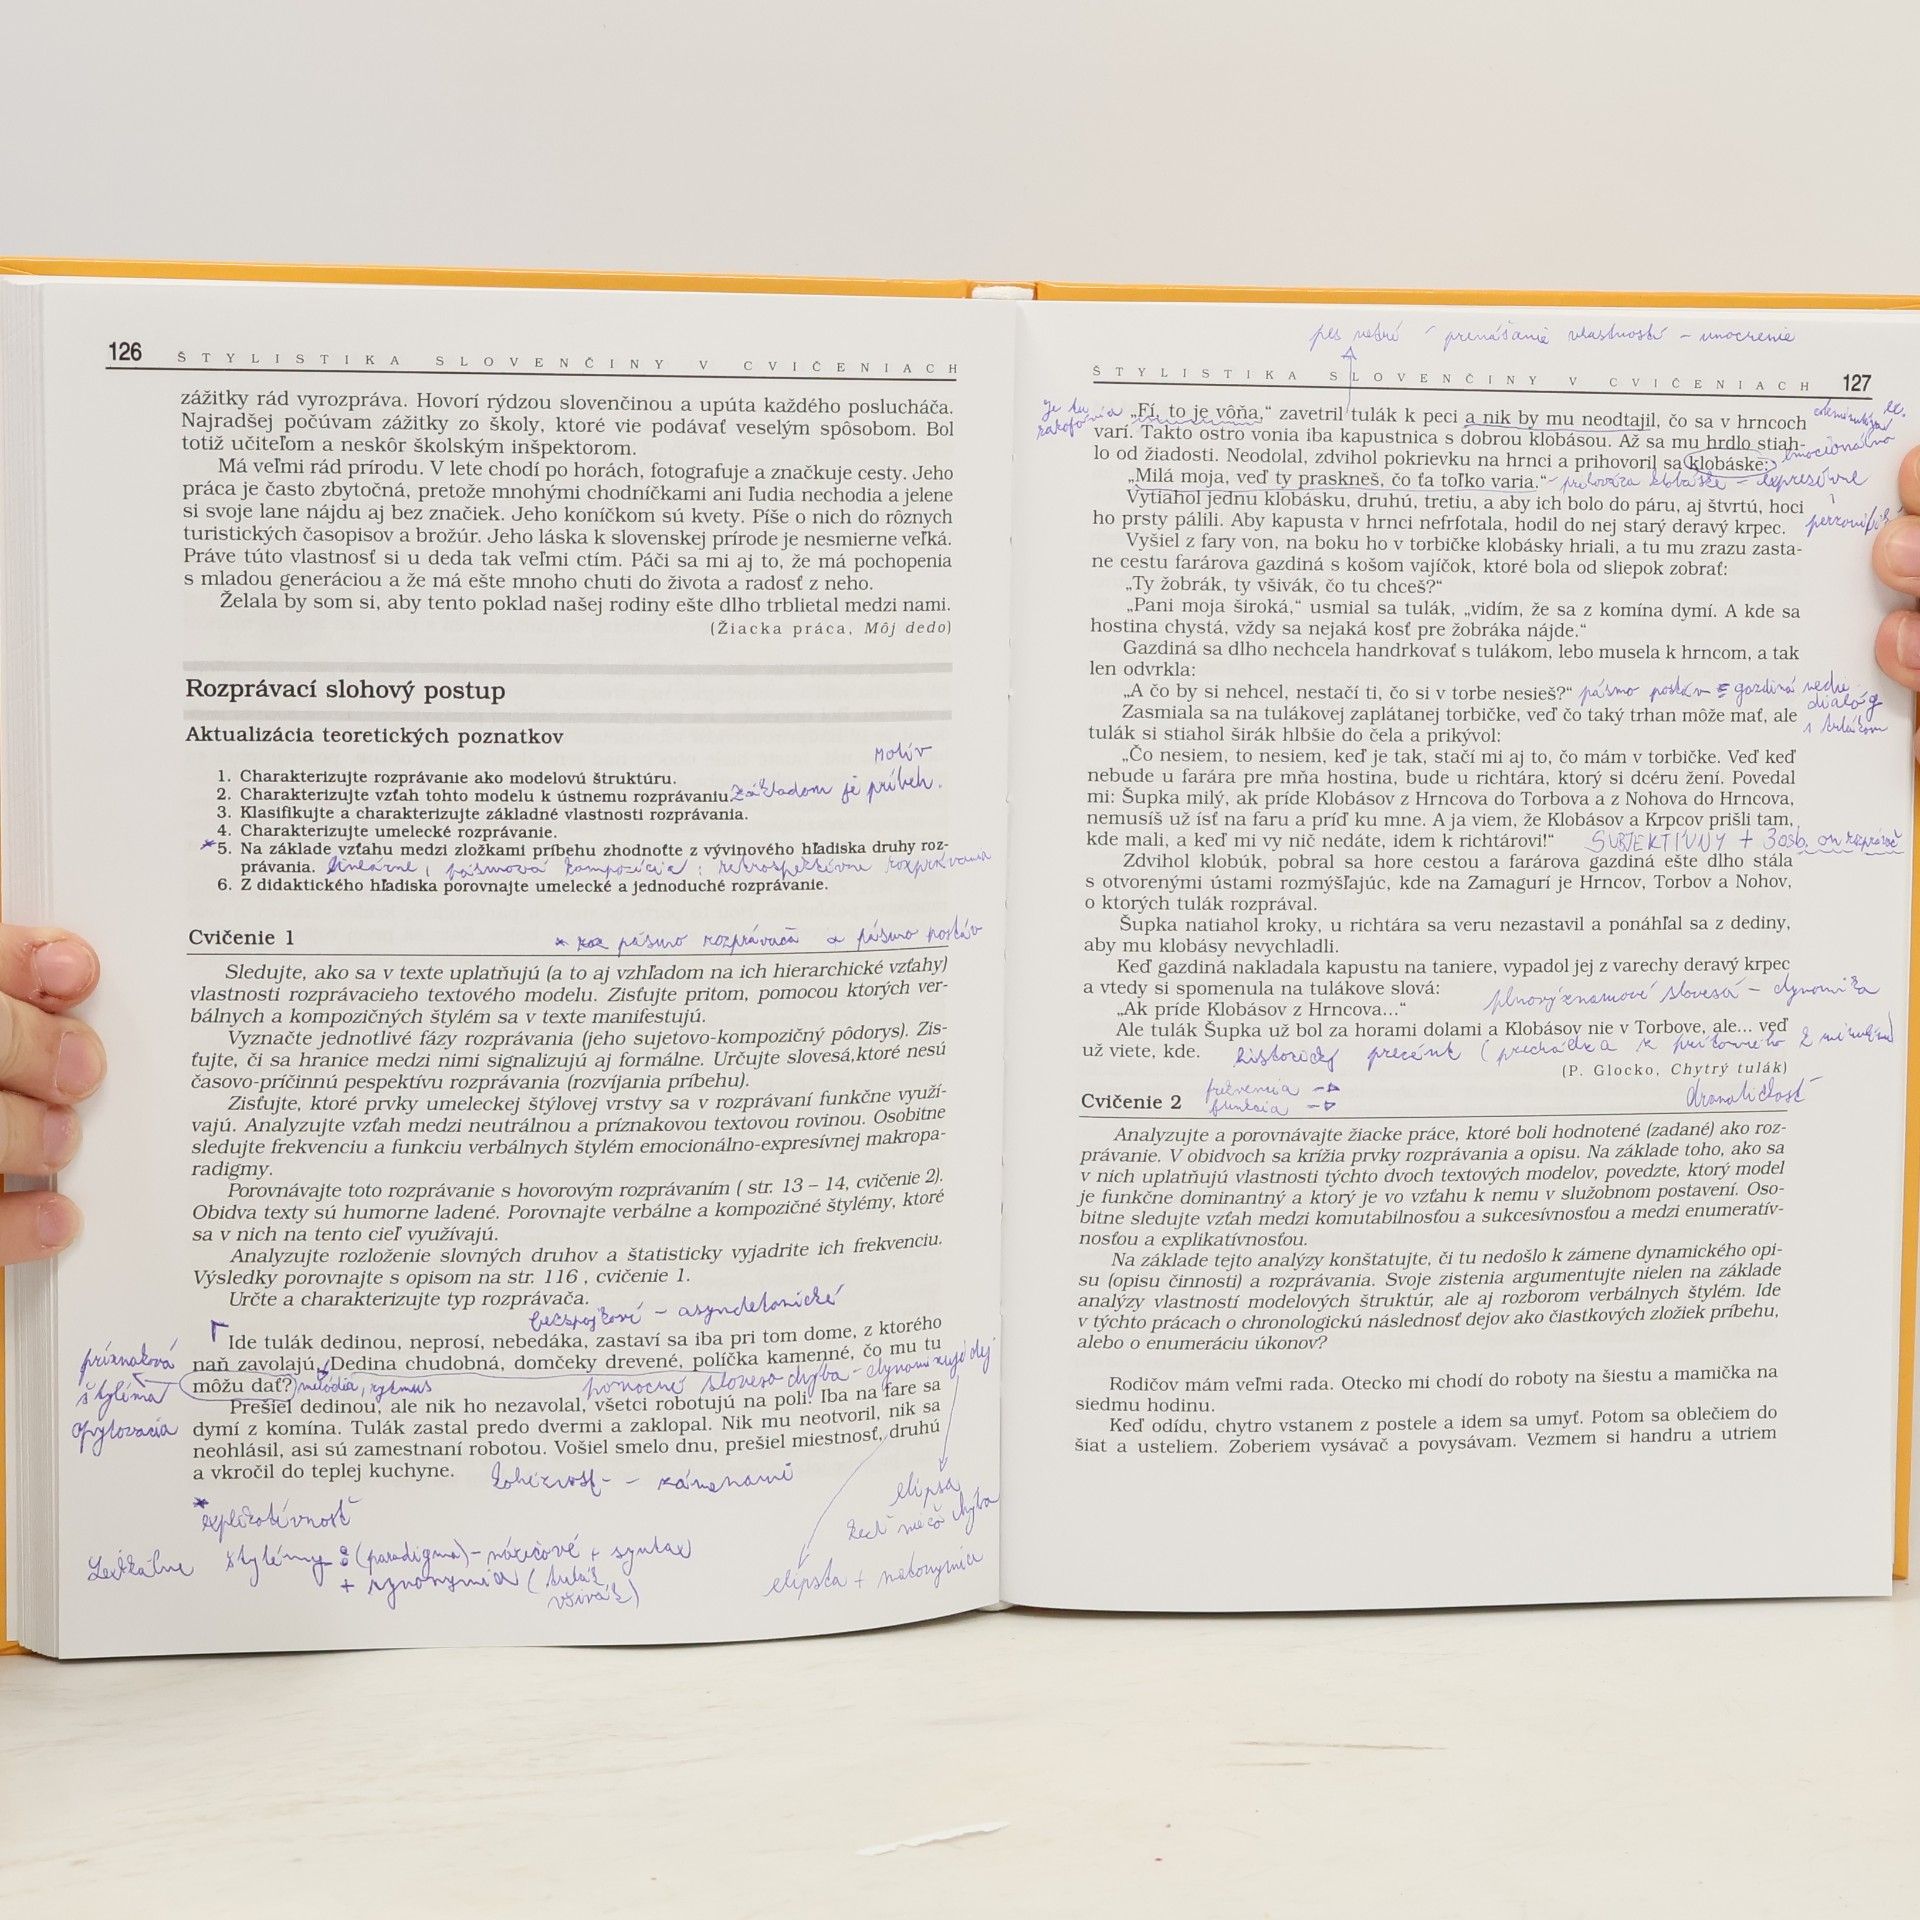 126 ŠTYLISTIKA SLOVENČINY V CVIČENIACH
zážitky rád vyrozpráva. Hovorí rýdzou slovenčinou a upúta každého poslucháča.
Najradšej počúvam zážitky zo školy, ktoré vie podávať veselým spôsobom. Bol
totiž učiteľom a neskôr školským inšpektorom.
Má veľmi rád prírodu. V lete chodí po horách, fotografuje a značkuje cesty. Jeho
práca je často zbytočná, pretože mnohými chodníčkami ani ľudia nechodia a jelene
si svoje lane nájdu aj bez značiek. Jeho koníčkom sú kvety. Píše o nich do rôznych
turistických časopisov a brožúr. Jeho láska k slovenskej prírode je nesmierne veľká.
Práve túto vlastnosť si u deda tak veľmi ctím. Páči sa mi aj to, že má pochopenia
s mladou generáciou a že má ešte mnoho chuti do života a radosť z neho.
Želala by som si, aby tento poklad našej rodiny ešte dlho trblietal medzi nami.
(Žiacka práca, Môj dedo)
Rozprávací slohový postup
Aktualizácia teoretických poznatkov
motív
1. Charakterizujte rozprávanie ako modelovú štruktúru.
2. Charakterizujte vzťah tohto modelu k ústnemu rozprávaniu. základom je príbeh.
3. Klasifikujte a charakterizujte základné vlastnosti rozprávania.
4. Charakterizujte umelecké rozprávanie.
* 5. Na základe vzťahu medzi zložkami príbehu zhodnoťte z vývinového hľadiska druhy roz-
právania. lineárne, pásmová kompozícia, retrospektívne rozprávania
6. Z didaktického hľadiska porovnajte umelecké a jednoduché rozprávanie.
Cvičenie 1 * pásmo rozprávača a pásmo postáv
Sledujte, ako sa v texte uplatňujú (a to aj vzhľadom na ich hierarchické vzťahy)
vlastnosti rozprávacieho textového modelu. Zisťujte pritom, pomocou ktorých ver-
bálnych a kompozičných štylém sa v texte manifestujú.
Vyznačte jednotlivé fázy rozprávania (jeho sujetovo-kompozičný pôdorys). Zis-
ťujte, či sa hranice medzi nimi signalizujú aj formálne. Určujte slovesá,ktoré nesú
časovo-príčinnú pespektívu rozprávania (rozvíjania príbehu).
Zisťujte, ktoré prvky umeleckej štýlovej vrstvy sa v rozprávaní funkčne využí-
vajú. Analyzujte vzťah medzi neutrálnou a príznakovou textovou rovinou. Osobitne
sledujte frekvenciu a funkciu verbálnych štylém emocionálno-expresívnej makropa-
radigmy.
Porovnávajte toto rozprávanie s hovorovým rozprávaním ( str. 13 – 14, cvičenie 2).
Obidva texty sú humorne ladené. Porovnajte verbálne a kompozičné štylémy, ktoré
sa v nich na tento cieľ využívajú.
Analyzujte rozloženie slovných druhov a štatisticky vyjadrite ich frekvenciu.
Výsledky porovnajte s opisom na str. 116 , cvičenie 1.
Určte a charakterizujte typ rozprávača.
bezspojkové - asyndetonické
Ide tulák dedinou, neprosí, nebedáka, zastaví sa iba pri tom dome, z ktorého
naň zavolajú. Dedina chudobná, domčeky drevené, políčka kamenné, čo mu tu
môžu dať? melódia, rytmus pomocné sloveso chýba - dynamizuje dej
príznaková
štyléma
opytovacia
Prešiel dedinou, ale nik ho nezavolal, všetci robotujú na poli. Iba na fare sa
dymí z komína. Tulák zastal predo dvermi a zaklopal. Nik mu neotvoril, nik sa
neohlásil, asi sú zamestnaní robotou. Vošiel smelo dnu, prešiel miestnosť, druhú
a vkročil do teplej kuchyne.
kohéznosť - zámenami
* explikatívnosť
elipsa
keď niečo chýba
Lexikálne štylémy: (paradigma) - nárečové + syntax
+ synonymia (tulák
všivák)
elipsa + metonymia
pes vetrí - prenášanie vlastností - umocnenie
ŠTYLISTIKA SLOVENČINY V CVIČENIACH 127
„Fí, to je vôňa,“ zavetril tulák k peci a nik by mu neodtajil, čo sa v hrncoch
varí. Takto ostro vonia iba kapustnica s dobrou klobásou. Až sa mu hrdlo stiah-
lo od žiadosti. Neodolal, zdvihol pokrievku na hrnci a prihovoril sa klobáske:
„Milá moja, veď ty praskneš, čo ťa toľko varia.“ - prihovára klobáske - expresívne
Vytiahol jednu klobásku, druhú, tretiu, a aby ich bolo do páru, aj štvrtú, hoci
ho prsty pálili. Aby kapusta v hrnci nefrfotala, hodil do nej starý deravý krpec.
Vyšiel z fary von, na boku ho v torbičke klobásky hriali, a tu mu zrazu zasta-
ne cestu farárova gazdiná s košom vajíčok, ktoré bola od sliepok zobrať:
„Ty žobrák, ty všivák, čo tu chceš?“
„Pani moja široká,“ usmial sa tulák, „vidím, že sa z komína dymí. A kde sa
hostina chystá, vždy sa nejaká kosť pre žobráka nájde.“
Gazdiná sa dlho nechcela handrkovať s tulákom, lebo musela k hrncom, a tak
len odvrkla:
„A čo by si nehcel, nestačí ti, čo si v torbe nesieš?“ pásmo postáv = gazdiná vedie
dialóg
s tulákom
Zasmiala sa na tulákovej zaplátanej torbičke, veď čo taký trhan môže mať, ale
tulák si stiahol širák hlbšie do čela a prikývol:
„Čo nesiem, to nesiem, keď je tak, stačí mi aj to, čo mám v torbičke. Veď keď
nebude u farára pre mňa hostina, bude u richtára, ktorý si dcéru žení. Povedal
mi: Šupka milý, ak príde Klobásov z Hrncova do Torbova a z Nohova do Hrncova,
nemusíš už ísť na faru a príď ku mne. A ja viem, že Klobásov a Krpcov prišli tam,
kde mali, a keď mi vy nič nedáte, idem k richtárovi!“ SUBJEKTÍVNY + 3 osb, on rozprávač
Zdvihol klobúk, pobral sa hore cestou a farárova gazdiná ešte dlho stála
s otvorenými ústami rozmýšľajúc, kde na Zamagurí je Hrncov, Torbov a Nohov,
o ktorých tulák rozprával.
Šupka natiahol kroky, u richtára sa veru nezastavil a ponáhľal sa z dediny,
aby mu klobásy nevychladli.
Keď gazdiná nakladala kapustu na taniere, vypadol jej z varechy deravý krpec
a vtedy si spomenula na tulákove slová:
plnovýznamové slovesá - dynamika
„Ak príde Klobásov z Hrncova...“
Ale tulák Šupka už bol za horami dolami a Klobásov nie v Torbove, ale... veď
už viete, kde. historický prezént (prechádza k prítomného z minulému
(P. Glocko, Chytrý tulák)
dramatickosť
frekvencia →
Cvičenie 2 funkcia →
Analyzujte a porovnávajte žiacke práce, ktoré boli hodnotené (zadané) ako roz-
právanie. V obidvoch sa krížia prvky rozprávania a opisu. Na základe toho, ako sa
v nich uplatňujú vlastnosti týchto dvoch textových modelov, povedzte, ktorý model
je funkčne dominantný a ktorý je vo vzťahu k nemu v služobnom postavení. Oso-
bitne sledujte vzťah medzi komutabilnosťou a sukcesívnosťou a medzi enumeratív-
nosťou a explikatívnosťou.
Na základe tejto analýzy konštatujte, či tu nedošlo k zámene dynamického opi-
su (opisu činnosti) a rozprávania. Svoje zistenia argumentujte nielen na základe
analýzy vlastností modelových štruktúr, ale aj rozborom verbálnych štylém. Ide
v týchto prácach o chronologickú následnosť dejov ako čiastkových zložiek príbehu,
alebo o enumeráciu úkonov?
Rodičov mám veľmi rada. Otecko mi chodí do roboty na šiestu a mamička na
siedmu hodinu.
Keď odídu, chytro vstanem z postele a idem sa umyť. Potom sa oblečiem do
šiat a usteliem. Zoberiem vysávač a povysávam. Vezmem si handru a utriem